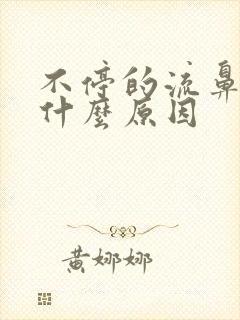 不停的流鼻
什麼原因
黄娜娜